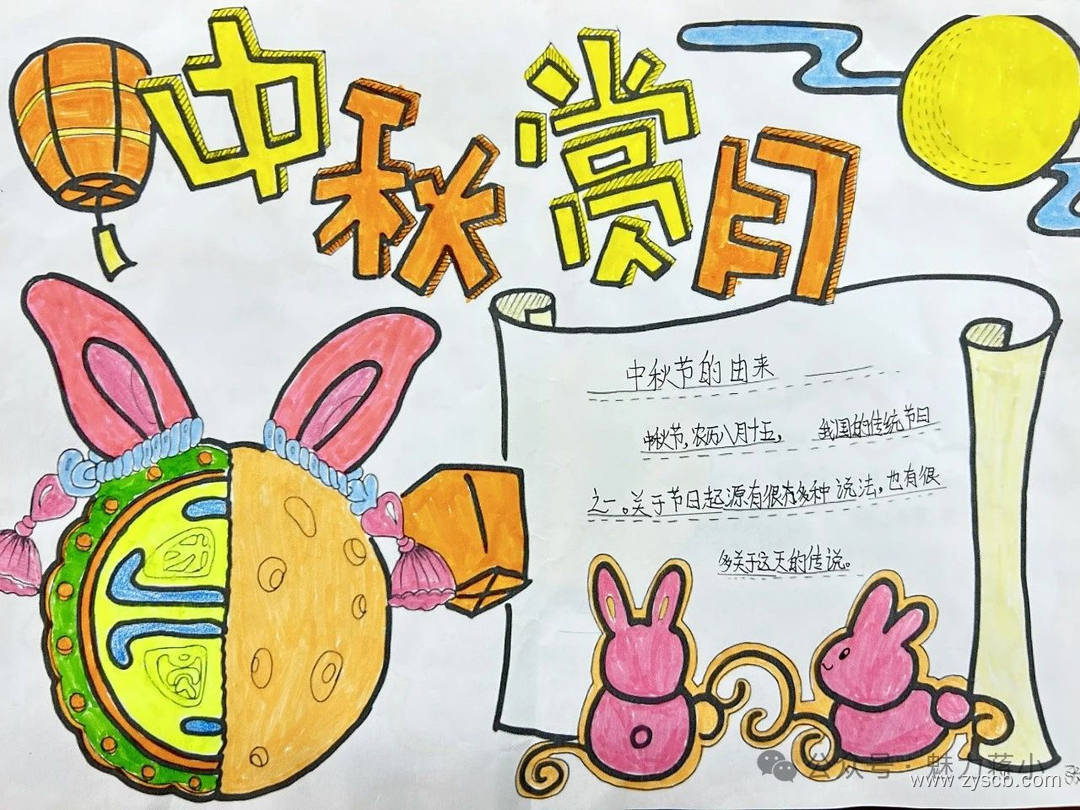 中秋赏月
中秋节的由来
中秋节,农历八月十五, 我国的传统节日
之一。关于节日起源有很有多种说法,也有很
多关于这天的传说。
公众号·魅力蒋小
www.zyscb.com